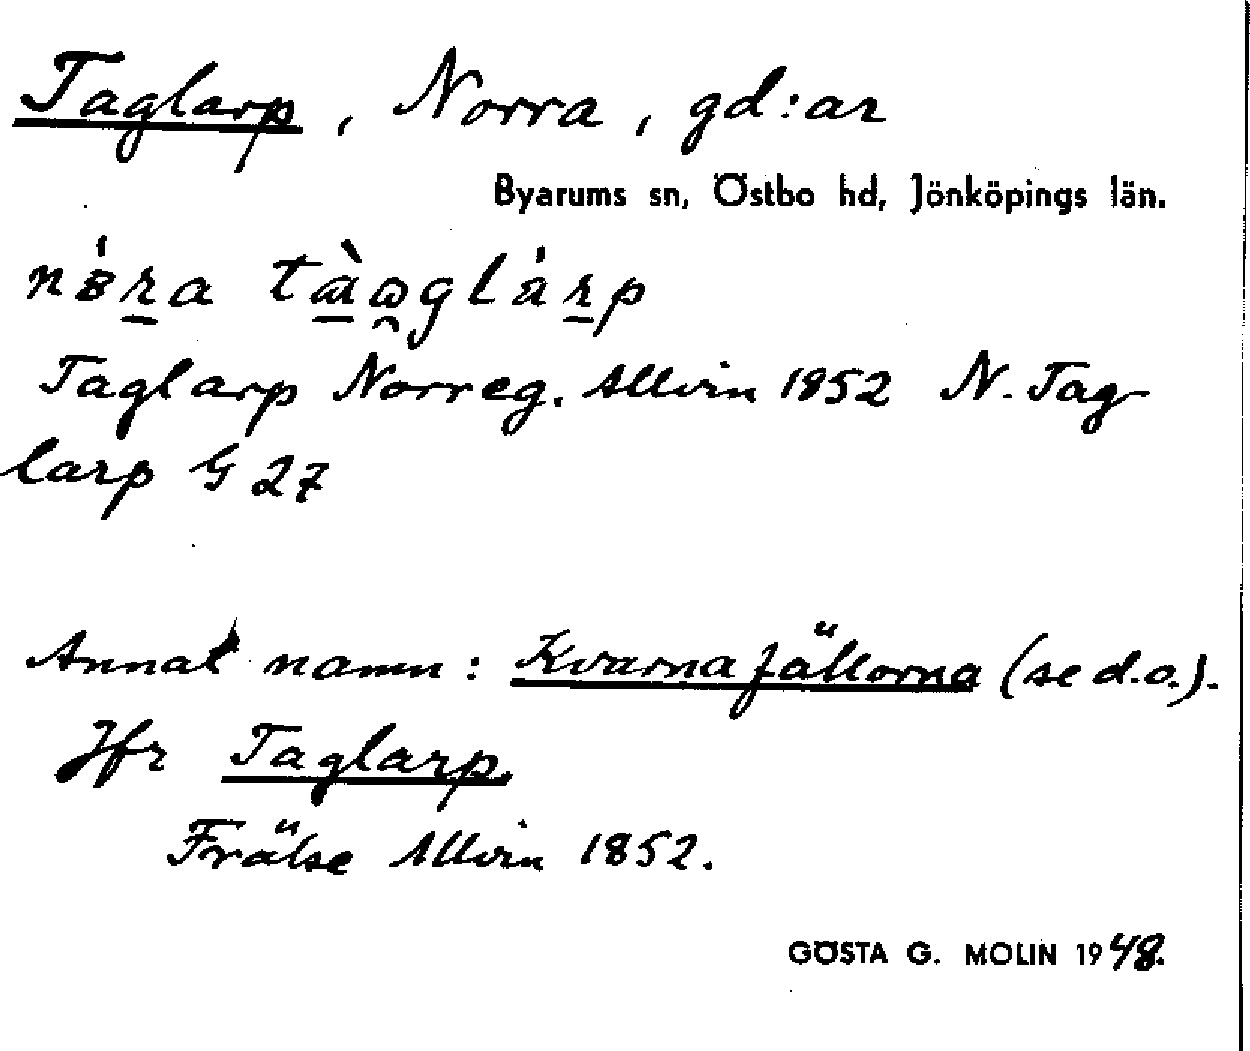 Taglarp, Norra, gd:ar
Byarums sn, Östbo hd, Jönköpings län.
Taglarp Norreg. Allvin 1852 N. Tag
larp G 27
Annat namn: Kvarnafällorna (se d.o.).
Jfr Taglarp.
Frälse Allvin 1852.
GÖSTA G. MOLIN 1948.